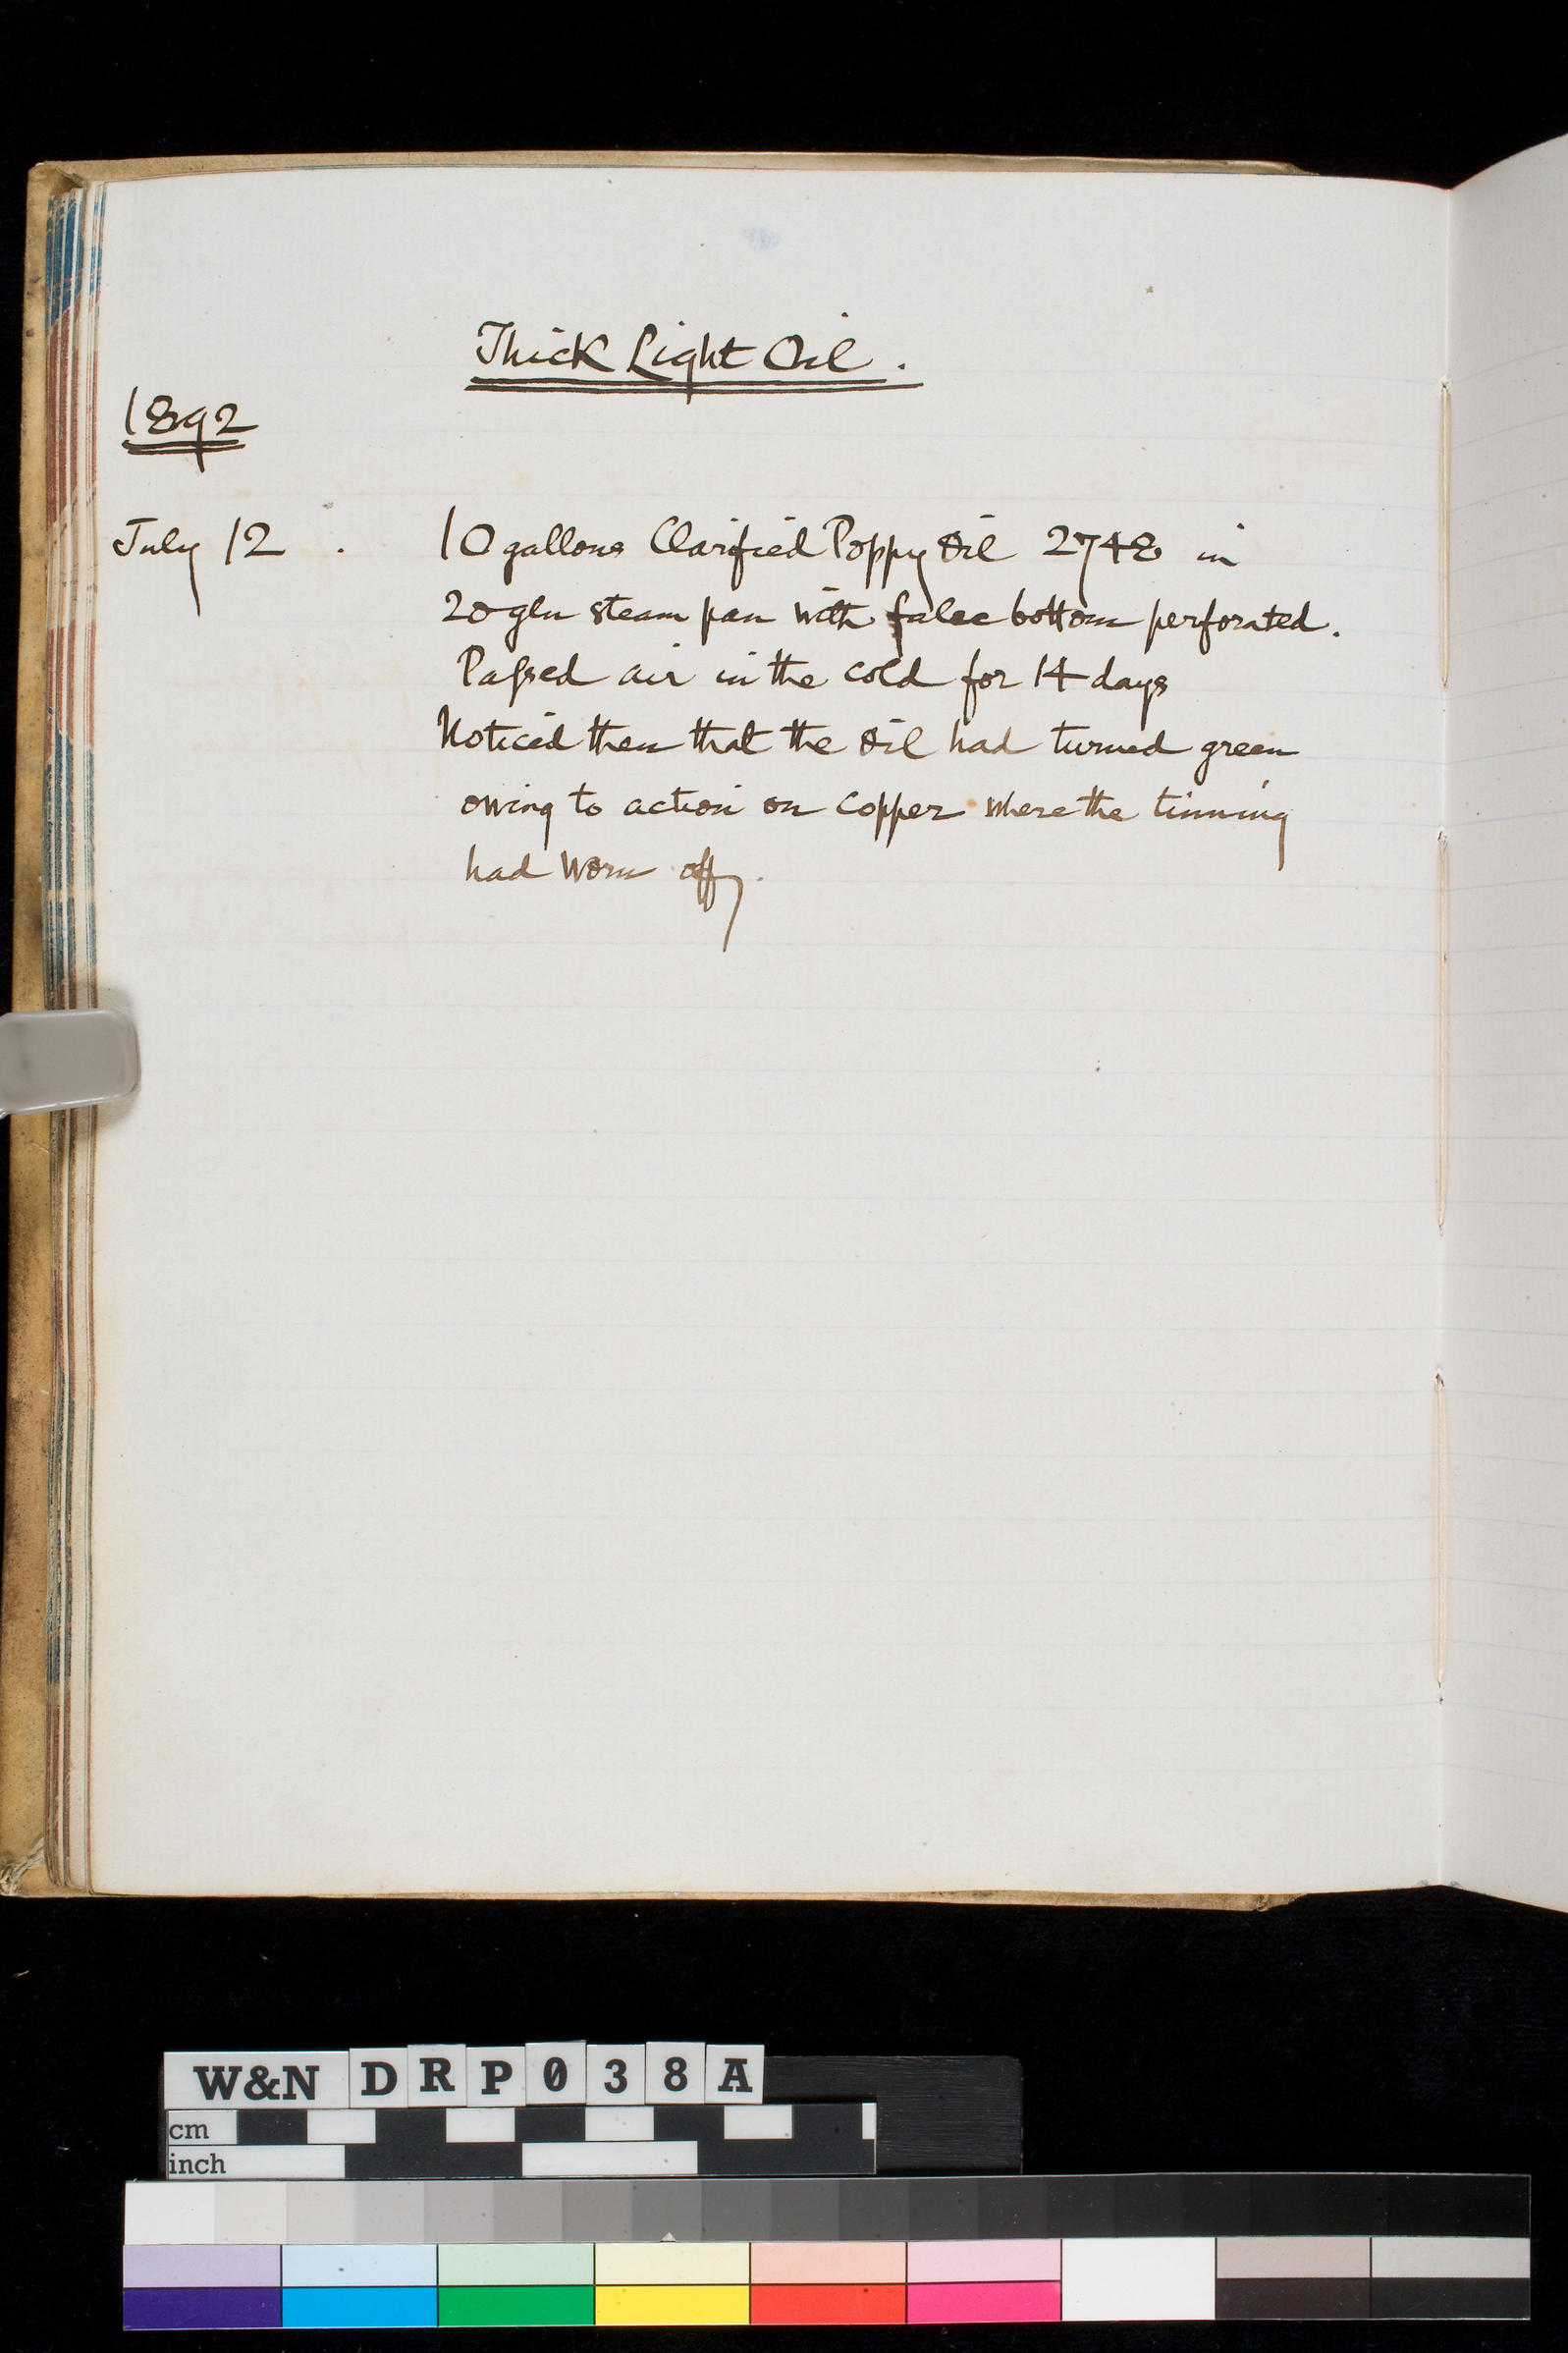 Thick Light Oil.
1892
July 12 . 10 gallons Clarified Poppy Oil 2748 in
20 gln steam pan with false bottom perforated.
Passed air in the cold for 14 days
Noticed then that the Oil had turned green
owing to action on copper where the tinning
had worn off.
W&N DRP038A
cm
inch